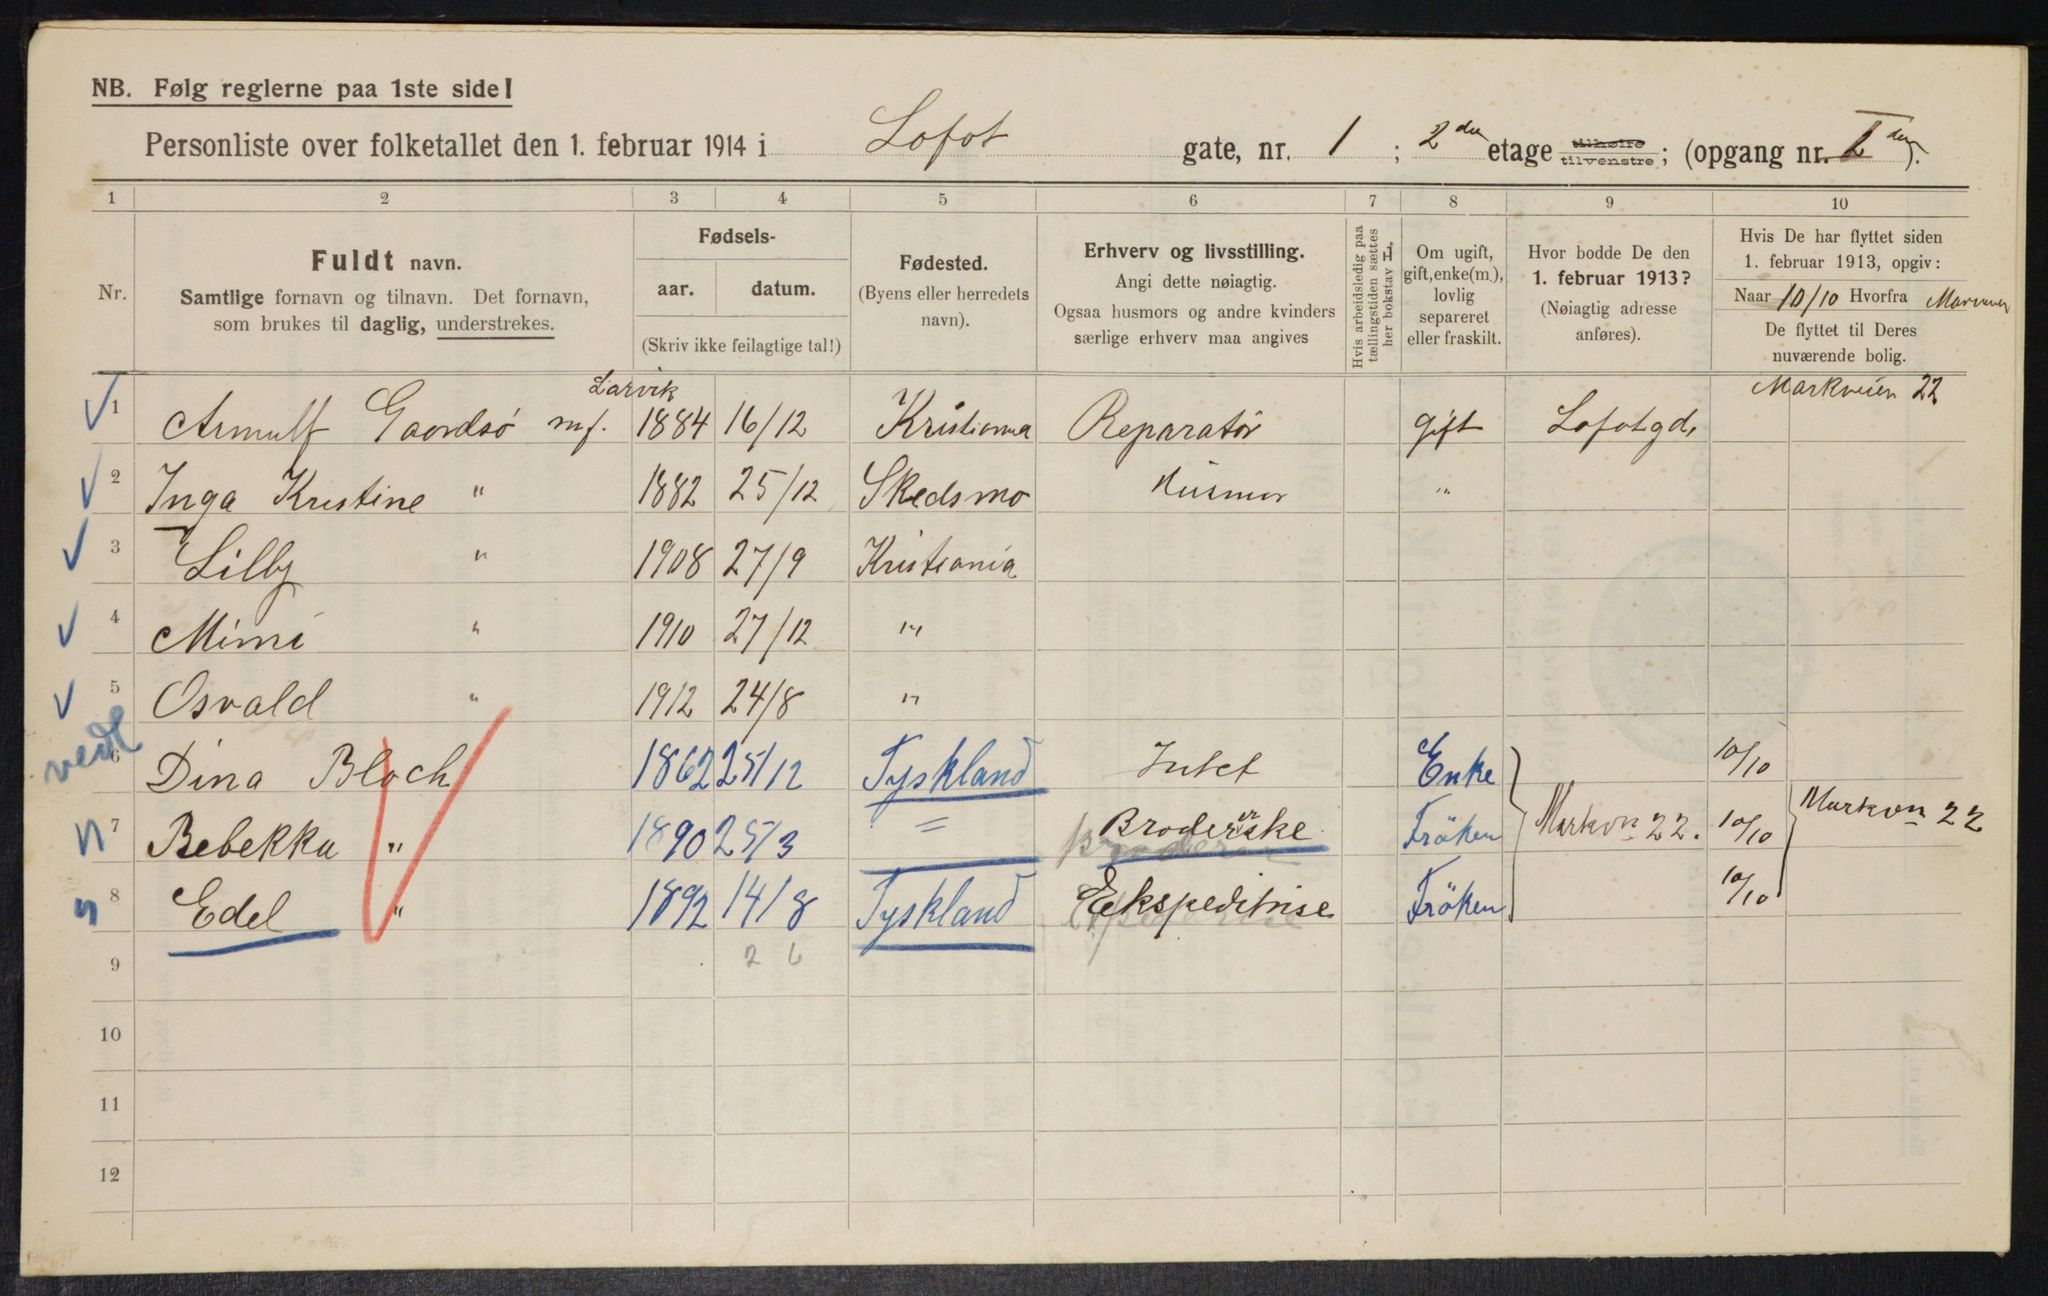 NB. Følg reglerne paa 1ste side!
Personliste over folketallet den 1. februar 1914 i Lofot gate, nr. 1 ; 2den etage tilhøire tilvenstre ; (opgang nr. I den).
1 2 3 4 5 6 7 8 9 10
Nr.
Fuldt navn.
Samtlige fornavn og tilnavn. Det fornavn,
som brukes til daglig, understrekes.
Fødsels-
aar. datum.
(Skriv ikke feilagtige tal!)
Fødested.
(Byens eller herredets
navn).
Erhverv og livsstilling.
Angi dette nøiagtig.
Ogsaa husmors og andre kvinders
særlige erhverv maa angives
Hvis arbeidsledig paa
tællingstiden sættes
her bokstav L.
Om ugift,
gift, enke(m.),
lovlig
separeret
eller fraskilt.
Hvor bodde De den
1. februar 1913?
(Nøiagtig adresse
anføres).
Hvis De har flyttet siden
1. februar 1913, opgiv:
Naar 10/10 Hvorfra
De flyttet til Deres
nuværende bolig.
Larvik Markveien 22
1 Arnulf Gaordsö 1884 16/12 Kristiania Reparatör gift Lofotgd,
2 Inga Kristine " 1882 25/12 Skedsmo Husmor "
3 Lilly " 1908 27/9 Kristiania
4 Mimi " 1910 27/12 "
5 Osvald " 1912 24/8 "
vedl
6 Dina Bloch 1862 25/12 Tyskland Intet Enke 10/10
7 Bebekka " 1890 25/3 = Broderske Fröken Markvn 22. 10/10 Markvn 22
8 Edel " 1892 14/8 Tyskland Ekspeditrise Fröken 10/10
26
9
10
11
12